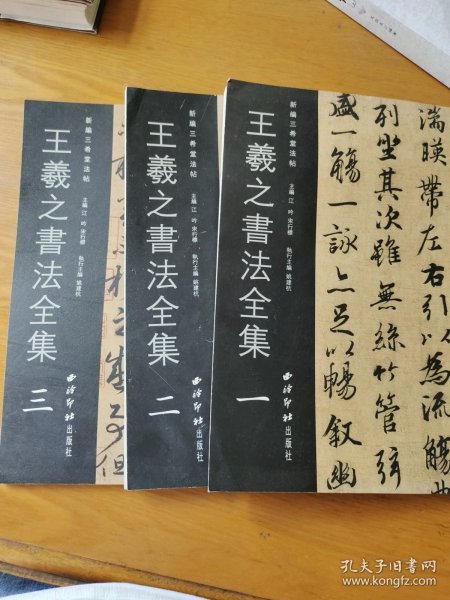 新編三希堂法帖
王羲之書法全集
主編 江吟 宋行標
執行主編 姚建杭
三
西泠印社出版社
新編三希堂法帖
王羲之書法全集
主編 江吟 宋行標
執行主編 姚建杭
二
西泠印社出版社
新編三希堂法帖
王羲之書法全集
主編 江吟 宋行標
執行主編 姚建杭
一
西泠印社出版社
湍暎帶左右引以為流觴曲
列坐其次雖無絲竹管弦
盛一觴一詠亦足以暢敘幽
孔夫子旧书网
www.kongfz.com